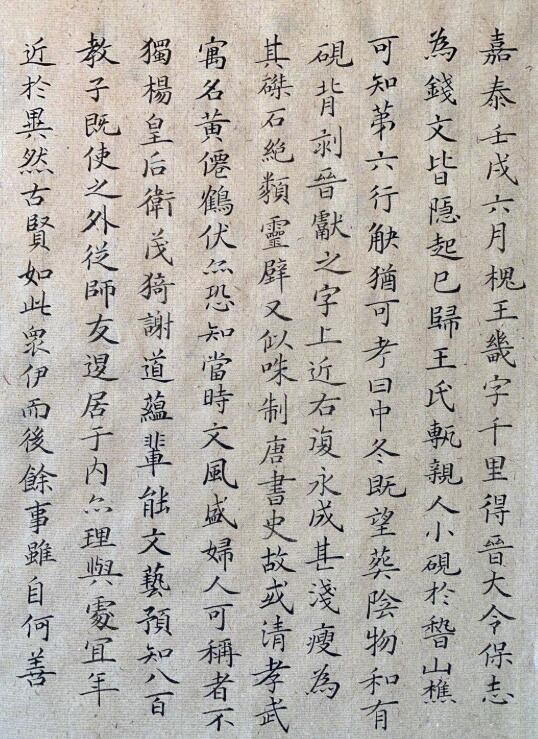 嘉泰壬戌六月槐王畿字千里得晉大令保志
為錢文皆隱起已歸王氏甎親人小硯於嵇山樵
可知第六行觖猶可考曰中冬既望葬陰物和有
硯背剥晉獻之字上近右復永成甚淺瘦為
其磔石絶類靈壁又似咮制唐書史故或清孝武
寓名黃僊鶴伏尓恐知當時文風盛婦人可稱者不
獨楊皇后衛茂猗謝道蘊輩能文藝預知八百
教子既使之外從師友退居于内尓理與處宜年
近於異然古賢如此衆伊而後餘事雖自何善